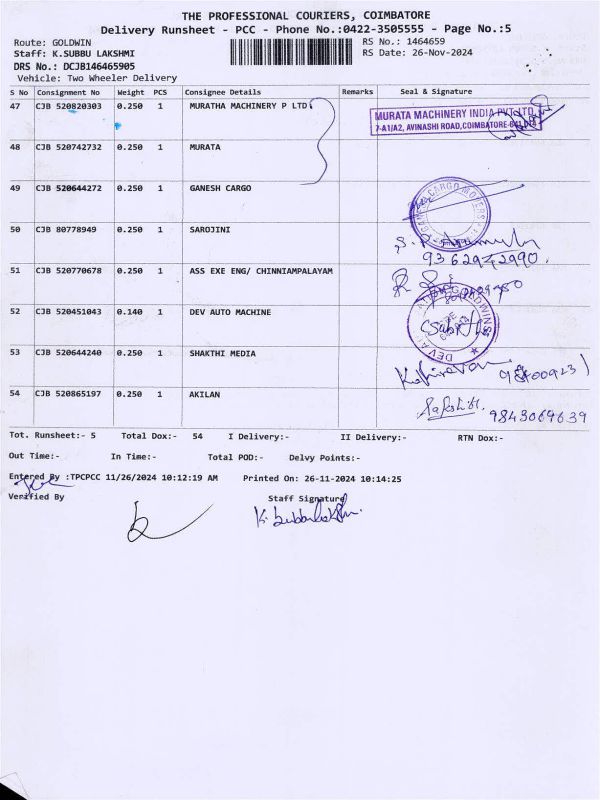 THE PROFESSIONAL COURIERS, COIMBATORE
Delivery Runsheet - PCC - Phone No.:0422-3505555 - Page No.:5
Route: GOLDWIN RS No.: 1464659
Staff: K.SUBBU LAKSHMI RS Date: 26-Nov-2024
DRS No.: DCJB146465905
Vehicle: Two Wheeler Delivery
S No Consignment No Weight PCS Consignee Details Remarks Seal & Signature
47 CJB 520820303 0.250 1 MURATHA MACHINERY P LTD
MURATA MACHINERY INDIA PVT.LTD.
7-A1/A2, AVINASHI ROAD, COIMBATORE-641
48 CJB 520742732 0.250 1 MURATA
49 CJB 520644272 0.250 1 GANESH CARGO
CARGO MOVERS
50 CJB 80778949 0.250 1 SAROJINI
9362942990.
51 CJB 520770678 0.250 1 ASS EXE ENG/ CHINNIAMPALAYAM
52 CJB 520451043 0.140 1 DEV AUTO MACHINE
53 CJB 520644240 0.250 1 SHAKTHI MEDIA
54 CJB 520865197 0.250 1 AKILAN
9843069639
Tot. Runsheet:- 5 Total Dox:- 54 I Delivery:- II Delivery:- RTN Dox:-
Out Time:- In Time:- Total POD:- Delvy Points:-
Entered By :TPCPCC 11/26/2024 10:12:19 AM Printed On: 26-11-2024 10:14:25
Verified By Staff Signature
K. Subbulakshmi